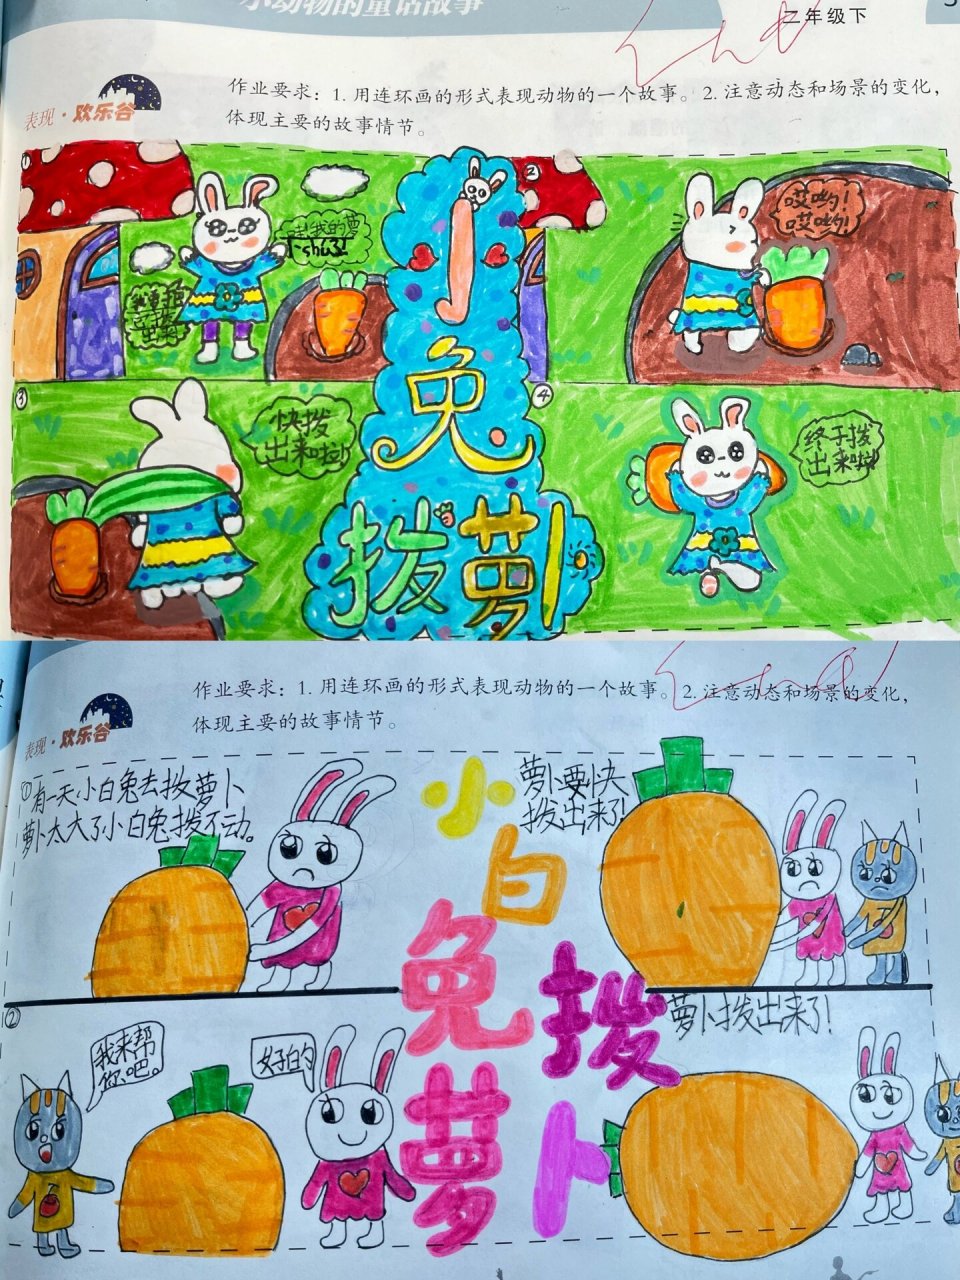 小动物的童话故事
二年级下
表现·欢乐谷
作业要求：1. 用连环画的形式表现动物的一个故事。2. 注意动态和场景的变化，
体现主要的故事情节。
①
②
哎哟！
哎哟！
小兔
拔萝卜
③
快拨
出来啦！
④
终于拨
出来啦！
表现·欢乐谷
作业要求：1. 用连环画的形式表现动物的一个故事。2. 注意动态和场景的变化，
体现主要的故事情节。
①有一天小白兔去拨萝卜
萝卜太大了小白兔拨不动。
小白兔拨萝卜
萝卜要快
拨出来了！
②
我来帮
你吧。
好的
萝卜拨出来了！